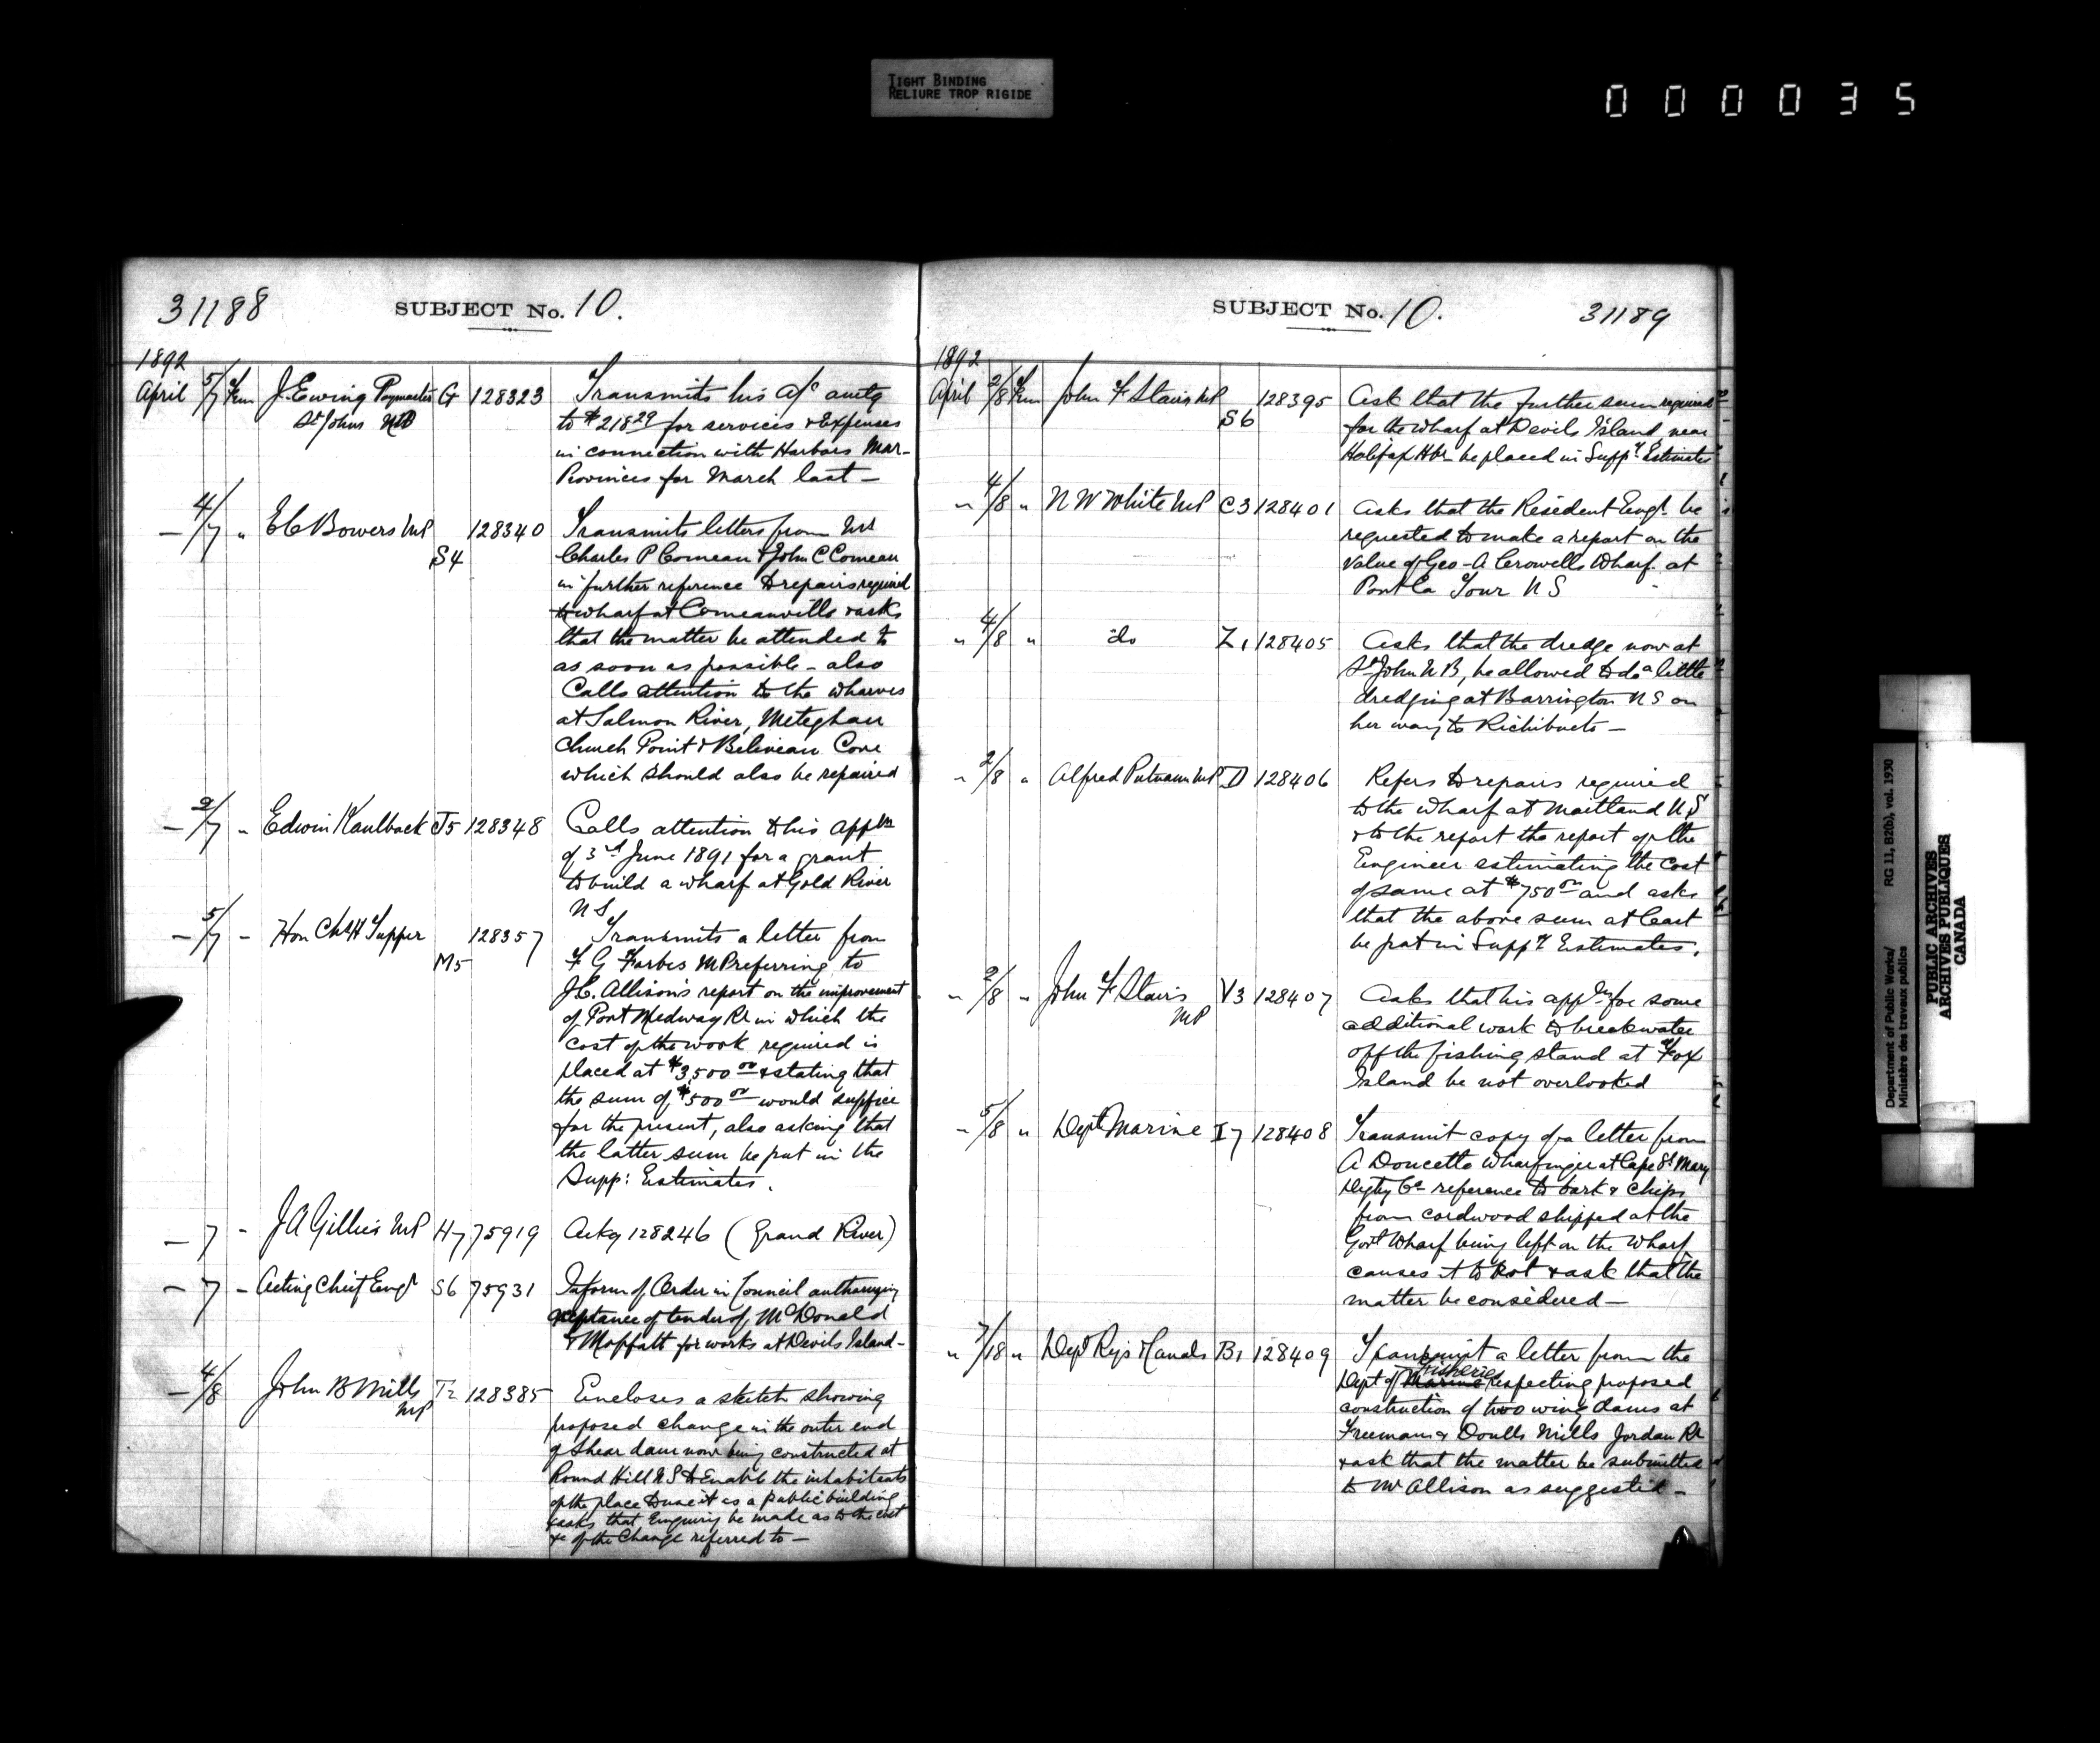 TIGHT BINDING
RELIURE TROP RIGIDE
000035
31188
SUBJECT No. 10.
1892
April 5/7 Fm J. Ewing Paymaster G 128323 Transmits his a/c amtg
St Johns NB to $218.29 for services & Expenses
in connection with Harbors Mar-
Provinces for March last —
— 4/7 " E C Bowers MP 128340 Transmits letters from Mr
S4 Charles P Comeau & John C Comeau
in further reference to repairs required
to wharf at Comeauville & asks
that the matter be attended to
as soon as possible - also
Calls attention to the wharves
at Salmon River, Meteghan
Church Point & Beliveau Cove
which should also be repaired
— 2/7 " Edwin Kaulback J5 128348 Calls attention to his appln
of 3rd June 1891 for a grant
to build a wharf at Gold River
N S
— 5/7 - Hon Ch H Tupper 128357 Transmits a letter from
M5 F G Forbes MP referring to
J.C. Allison's report on the improvement
of Port Medway Rr in which the
cost of the work required is
placed at $3,500 00 & stating that
the sum of $500 00 would suffice
for the present, also asking that
the latter sum be put in the
Supp: Estimates.
— 7 - J A Gillies MP H7 75919 Ackg 128246 (Grand River)
— 7 - Acting Chief Engr S6 75931 Inform of Order in Council authorizing
acceptance of tender of McDonald
& Moffatt for works at Devils Island -
— 4/8 John B Mills T2 128385 Encloses a sketch showing
MP proposed change in the outer end
of Shear dam now being constructed at
Round Hill N S to Enable the inhabitants
of the place to use it as a public building
& asks that Enquiry be made as to the cost
&c of the Change referred to —
SUBJECT No. 10.
31189
1892
April 2/8 Fm John F Stairs MP 128395 Ask that the further sum required
S6 for the wharf at Devils Island near
Halifax Hbr be placed in Suppy Estimates
" 4/8 " N W White MP C3 128401 Asks that the Resident Engr. be
requested to make a report on the
value of Geo - A Crowells Wharf at
Port La Tour N S
" 4/8 " do Z1 128405 Asks that the dredge now at
St John N B, be allowed to do a little
dredging at Barrington N S on
her way to Richibucto —
" 2/8 " Alfred Putnam MP D 128406 Refers to repairs required
to the wharf at Maitland N S
& to the report the report of the
Engineer estimating the cost
of same at $750 00 and asks
that the above sum at least
be put in Suppy Estimates.
" 2/8 " John F Stairs V3 128407 Asks that his appln for some
MP additional work to breakwater
off the fishing stand at Fox
Island be not overlooked
" 5/8 " Dept Marine I7 128408 Transmit copy of a letter from
A Doucette Wharfinger at Cape St Mary
Digby Co reference to bark & chips
from cordwood shipped at the
Govt Wharf being left on the wharf
causes it to rot & ask that the
matter be considered —
" 7/18 " Dept Rys & Canals B1 128409 Transmit a letter from the
Fisheries
Dept of Marine respecting proposed
construction of two wing dams at
Freeman & Doulls Mills Jordan Rr
& ask that the matter be submitted
to Mr Allison as suggested —
Department of Public Works/ RG 11, B2(b), vol. 1930
Ministère des travaux publics
PUBLIC ARCHIVES
ARCHIVES PUBLIQUES
CANADA